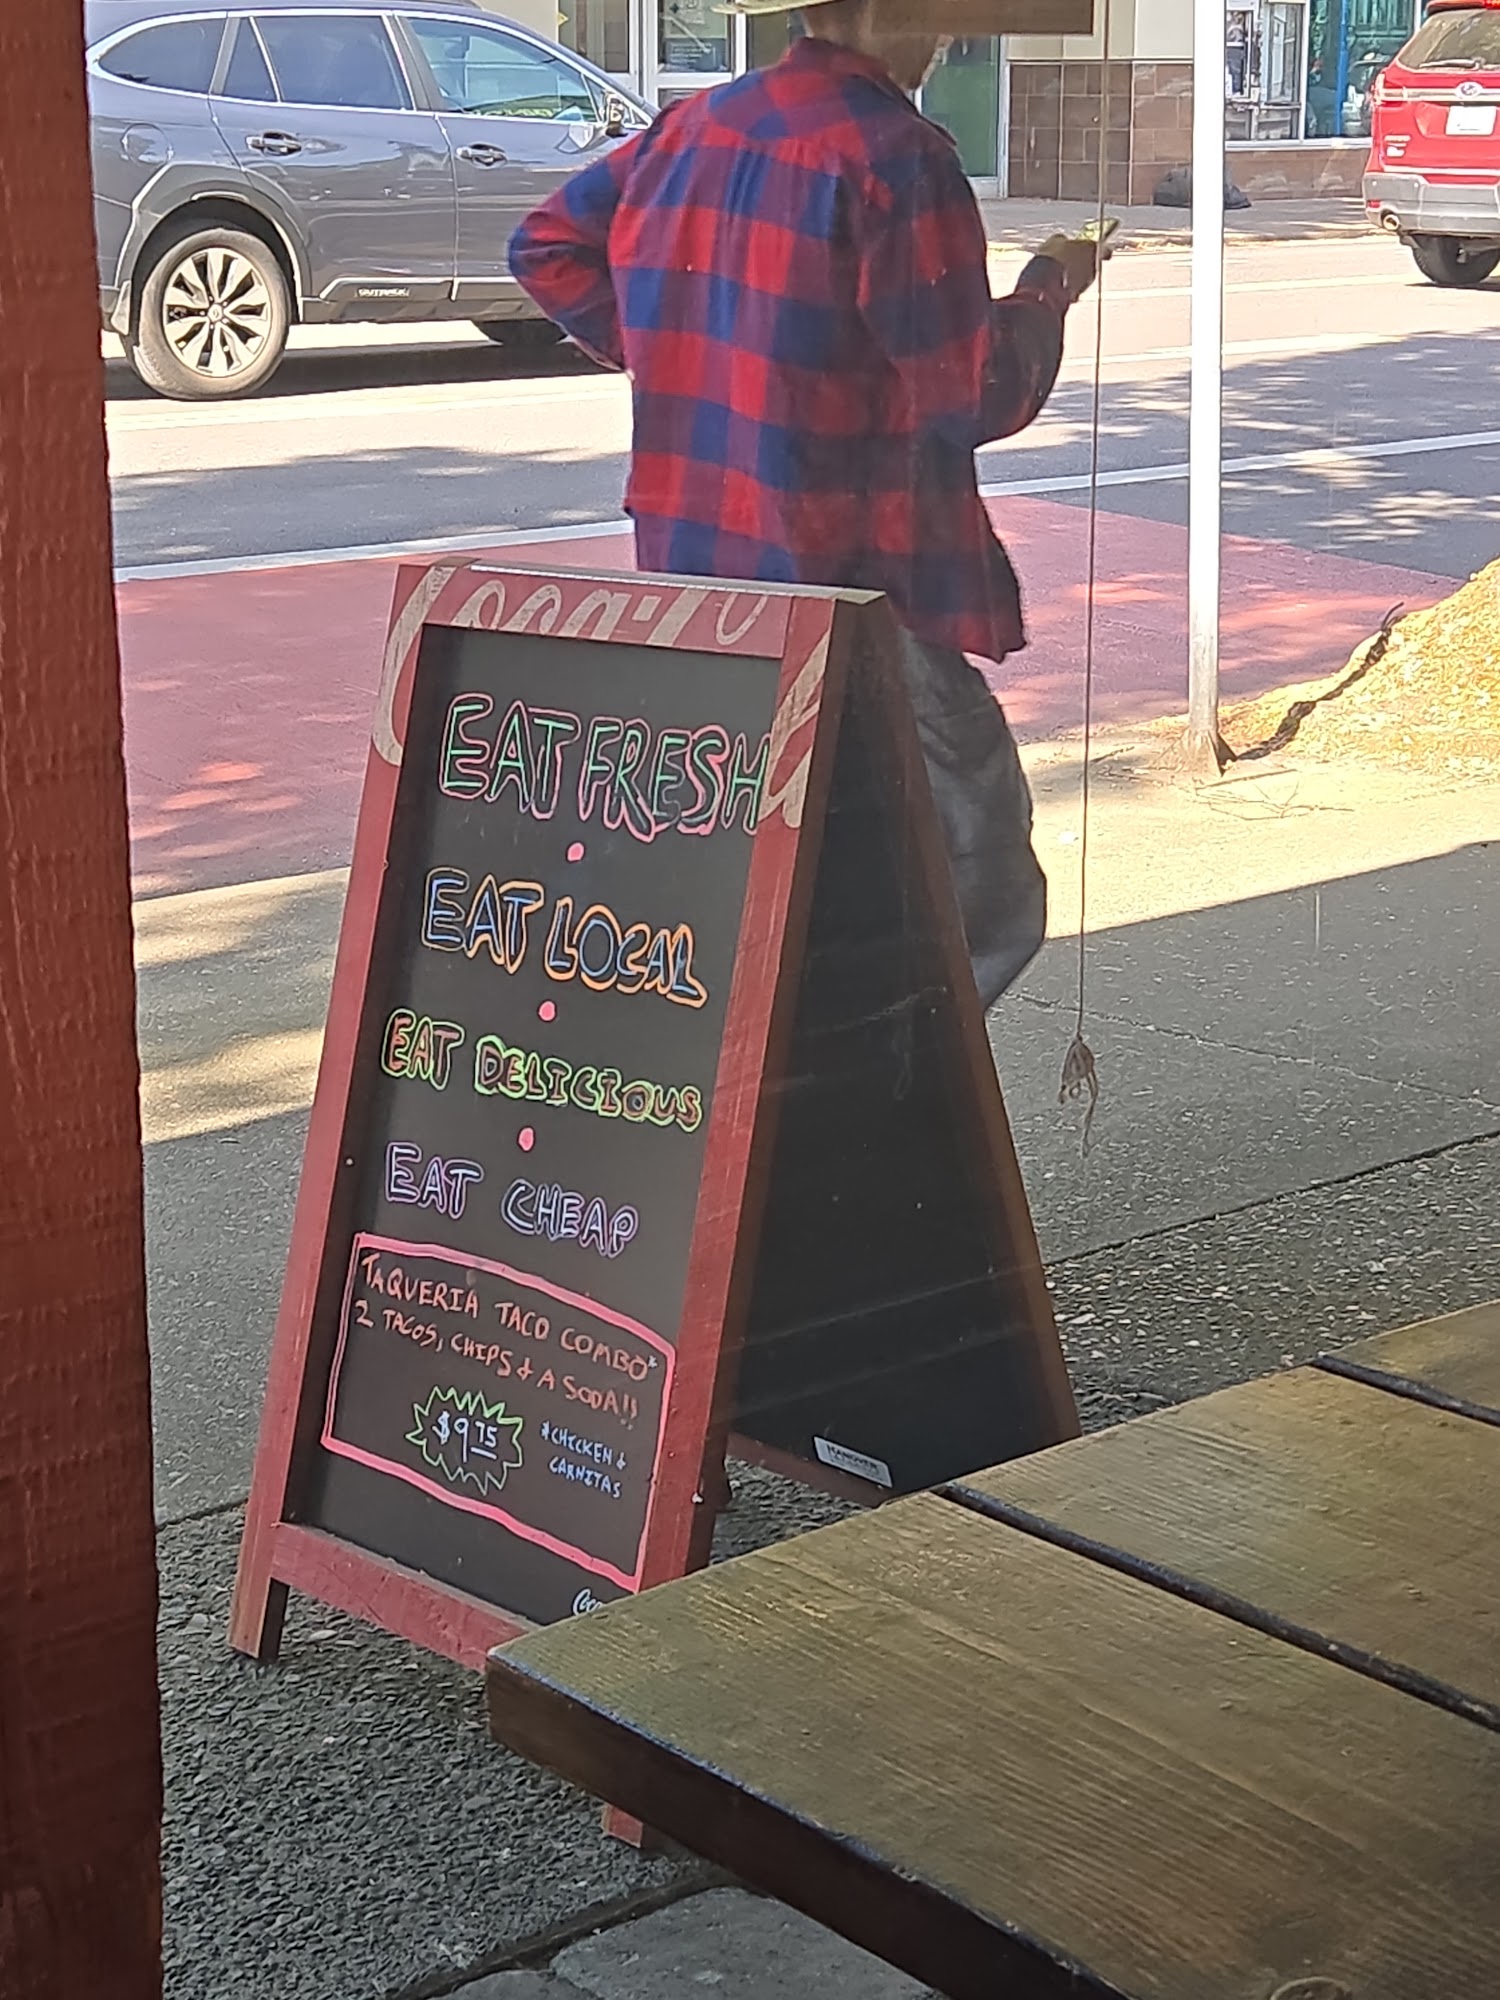 OUTBACK
Coca-Co
EAT FRESH
EAT LOCAL
EAT DELICIOUS
EAT CHEAP
TAQUERIA TACO COMBO*
2 TACOS, CHIPS & A SODA!!
$9.75
*CHICKEN &
CARNITAS
HANOVER